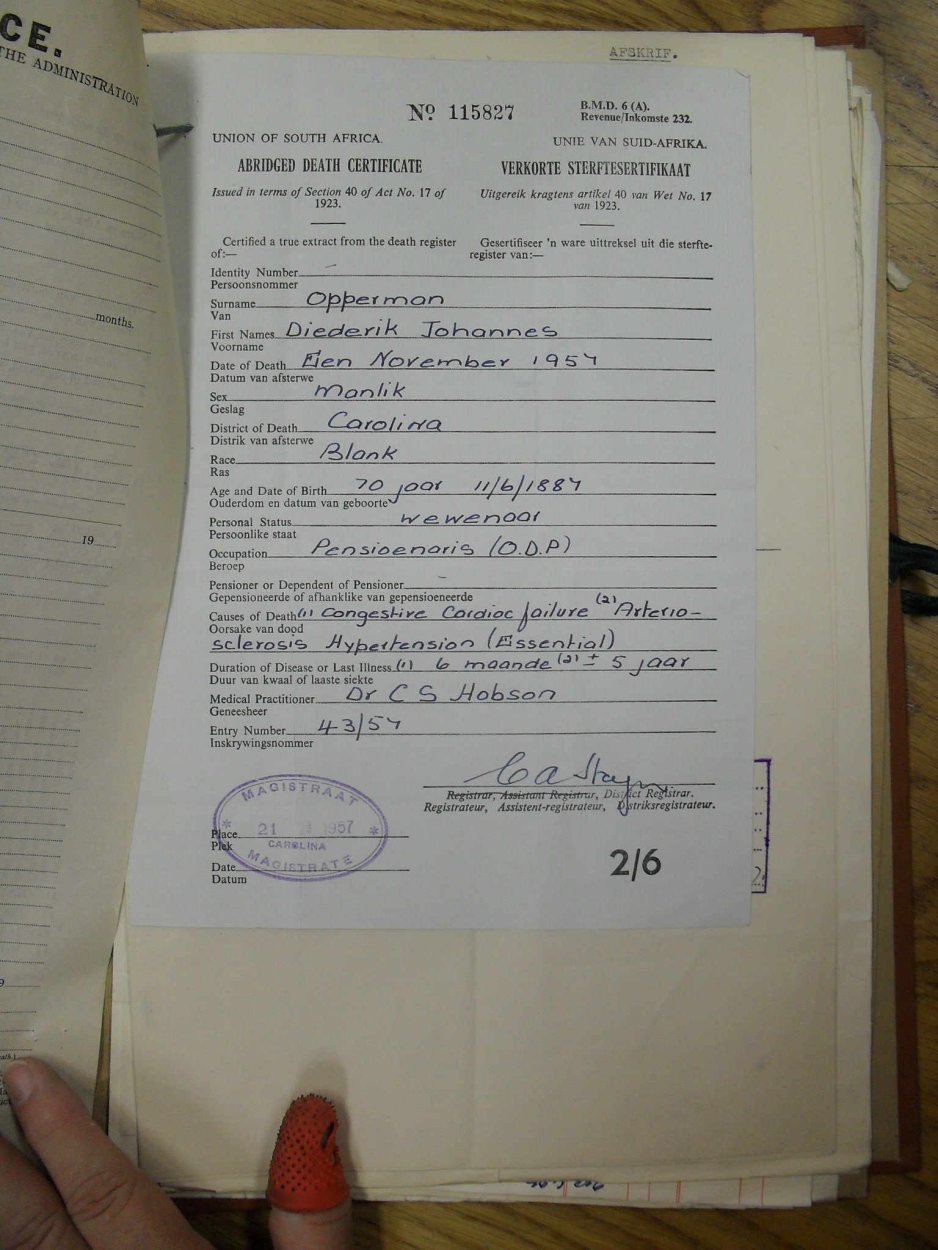 CE.
THE ADMINISTRATION
months.
19
AFSKRIF.
Nº 115827
B.M.D. 6 (A).
Revenue/Inkomste 232.
UNION OF SOUTH AFRICA.
UNIE VAN SUID-AFRIKA.
ABRIDGED DEATH CERTIFICATE
VERKORTE STERFTESERTIFIKAAT
Issued in terms of Section 40 of Act No. 17 of
1923.
Uitgereik kragtens artikel 40 van Wet No. 17
van 1923.
Certified a true extract from the death register
of:—
Gesertifiseer 'n ware uittreksel uit die sterfte-
register van:—
Identity Number —
Persoonsnommer
Surname Opperman
Van
First Names Diederik Johannes
Voorname
Date of Death Een November 1957
Datum van afsterwe
Sex Manlik
Geslag
District of Death Carolina
Distrik van afsterwe
Race Blank
Ras
Age and Date of Birth 70 jaar 11/6/1887
Ouderdom en datum van geboorte
Personal Status wewenaar
Persoonlike staat
Occupation Pensioenaris (O.D.P)
Beroep
Pensioner or Dependent of Pensioner —
Gepensioeneerde of afhanklike van gepensioeneerde
Causes of Death (1) Congestive Cardiac failure (2) Arterio-
Oorsake van dood
sclerosis Hypertension (Essential)
Duration of Disease or Last Illness (1) 6 maande (2) ± 5 jaar
Duur van kwaal of laaste siekte
Medical Practitioner Dr C S Hobson
Geneesheer
Entry Number 43/57
Inskrywingsnommer
Registrar, Assistant Registrar, District Registrar.
Registrateur, Assistent-registrateur, Distriksregistrateur.
MAGISTRAAT
21 1957
CAROLINA
MAGISTRATE
Place
Plek
Date
Datum
2/6